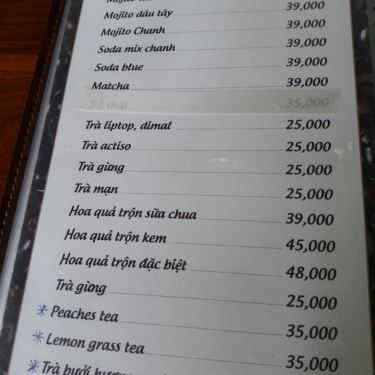 Mojito 39,000
Mojito dâu tây 39,000
Mojito Chanh 39,000
Soda mix chanh 39,000
Soda blue 39,000
Matcha 39,000
35,000
Trà liptop, dimal 25,000
Trà actiso 25,000
Trà gừng 25,000
Trà mạn 25,000
Hoa quả trộn sữa chua 39,000
Hoa quả trộn kem 45,000
Hoa quả trộn đặc biệt 48,000
Trà gừng 25,000
Peaches tea 35,000
Lemon grass tea 35,000
Trà bưởi